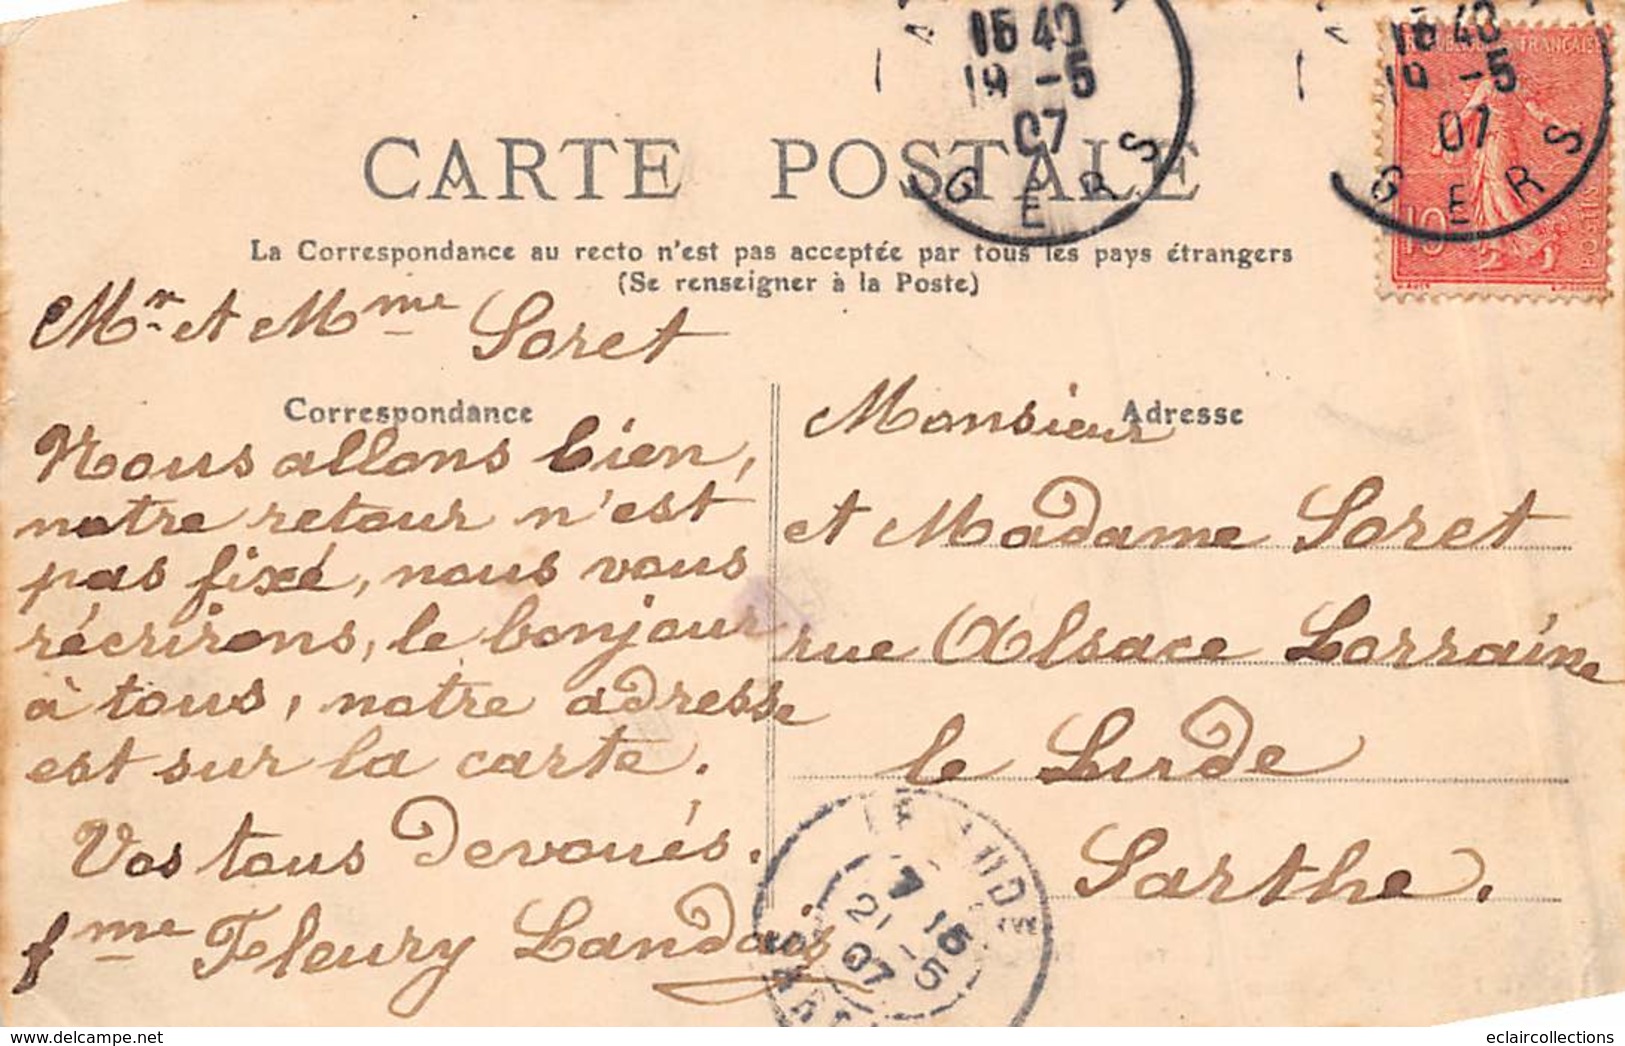 16 40
19 -5
07
GERS
16 40
19 -5
07
GERS
REPUBLIQUE FRANÇAISE
10
POSTES
CARTE POSTALE
La Correspondance au recto n'est pas acceptée par tous les pays étrangers
(Se renseigner à la Poste)
Mr et Mme Soret
Correspondance
Nous allons bien,
notre retour n'est
pas fixé, nous vous
récrirons, le bonjour
à tous, notre adresse
est sur la carte.
Vos tous devoués.
fme Fleury Landais
Adresse
Monsieur
et Madame Soret
rue Alsace Lorraine
le Lude
Sarthe.
LE LUDE
7 15
21 -5
07
SARTHE
eclaircollections